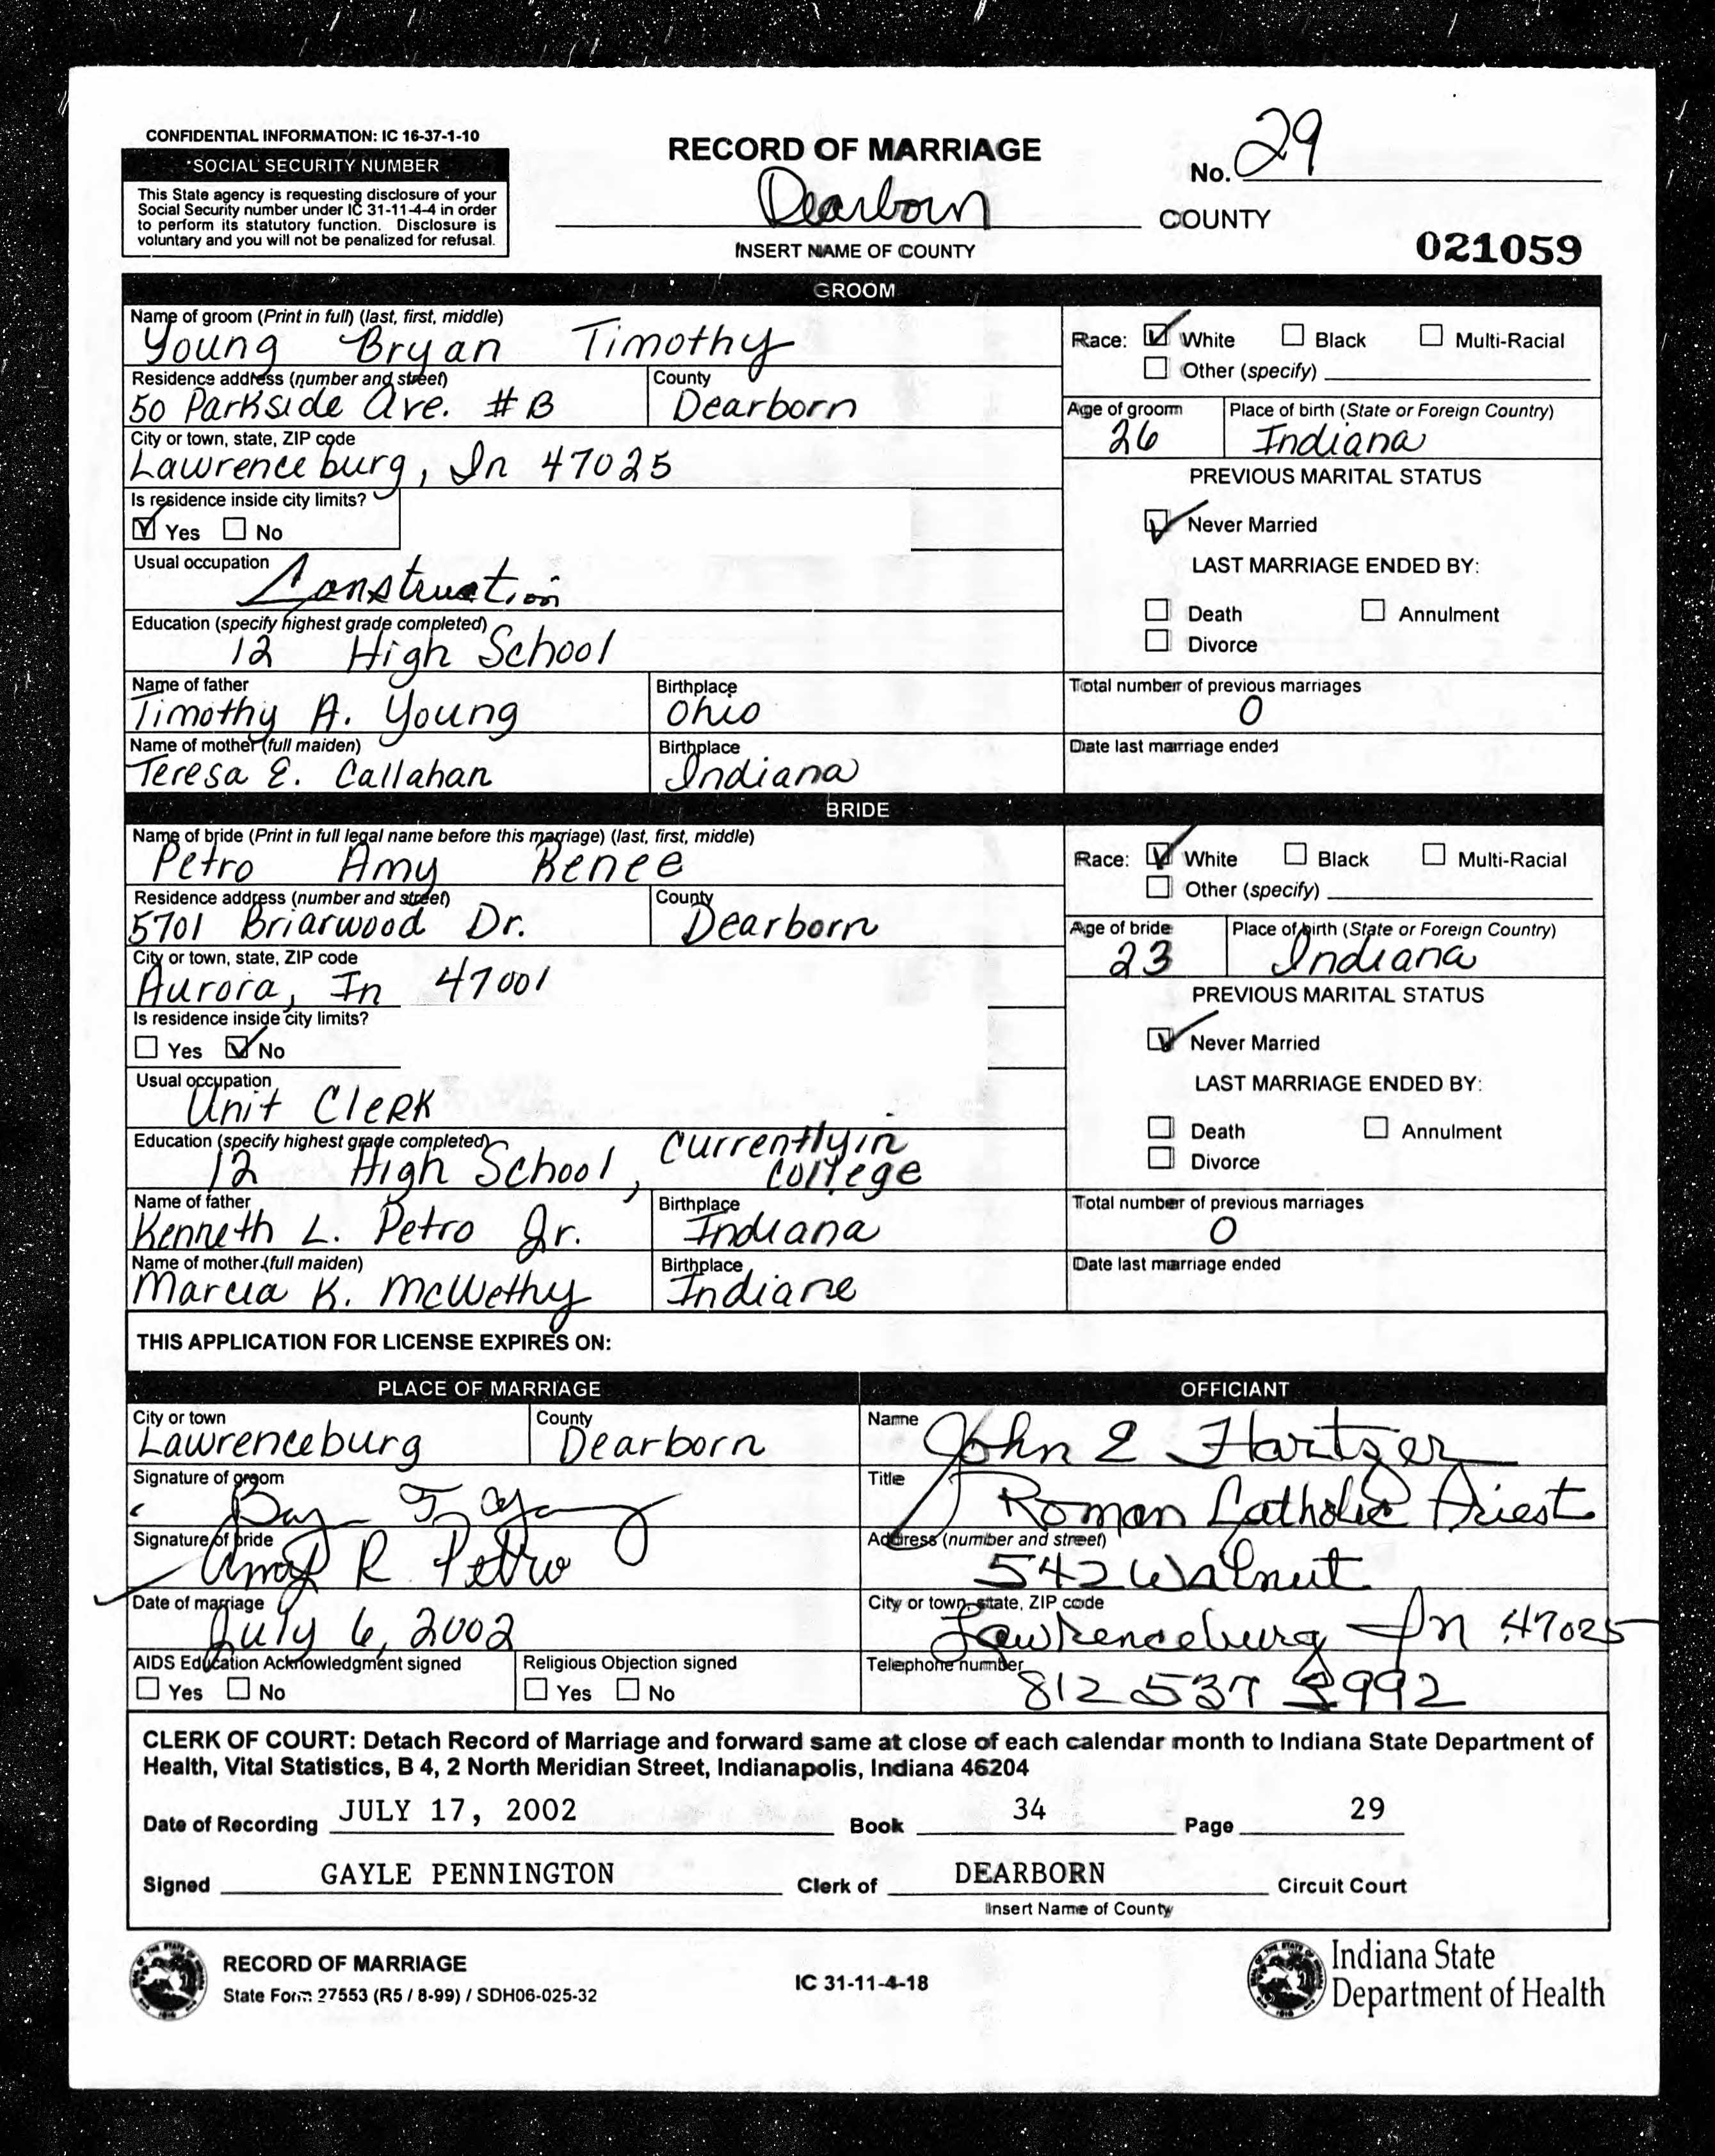 CONFIDENTIAL INFORMATION: IC 16-37-1-10
*SOCIAL SECURITY NUMBER
This State agency is requesting disclosure of your
Social Security number under IC 31-11-4-4 in order
to perform its statutory function. Disclosure is
voluntary and you will not be penalized for refusal.
RECORD OF MARRIAGE
No. 29
Dearborn COUNTY
INSERT NAME OF COUNTY
021059
GROOM
Name of groom (Print in full) (last, first, middle)
Young Bryan Timothy
Race: White Black Multi-Racial
Other (specify)
Residence address (number and street) County
50 Parkside Ave. #B Dearborn
Age of groom Place of birth (State or Foreign Country)
26 Indiana
City or town, state, ZIP code
Lawrenceburg, In 47025
PREVIOUS MARITAL STATUS
Is residence inside city limits?
Yes No
Never Married
Usual occupation
Construction
LAST MARRIAGE ENDED BY:
Death Annulment
Divorce
Education (specify highest grade completed)
12 High School
Name of father Birthplace
Timothy A. Young Ohio
Total number of previous marriages
0
Name of mother (full maiden) Birthplace
Teresa E. Callahan Indiana
Date last marriage ended
BRIDE
Name of bride (Print in full legal name before this marriage) (last, first, middle)
Petro Amy Renee
Race: White Black Multi-Racial
Other (specify)
Residence address (number and street) County
5701 Briarwood Dr. Dearborn
Age of bride Place of birth (State or Foreign Country)
23 Indiana
City or town, state, ZIP code
Aurora, In 47001
PREVIOUS MARITAL STATUS
Is residence inside city limits?
Yes No
Never Married
Usual occupation
Unit Clerk
LAST MARRIAGE ENDED BY:
Death Annulment
Divorce
Education (specify highest grade completed)
12 High School, Currently in
College
Name of father Birthplace
Kenneth L. Petro Jr. Indiana
Total number of previous marriages
0
Name of mother (full maiden) Birthplace
Marcia K. McWethy Indiane
Date last marriage ended
THIS APPLICATION FOR LICENSE EXPIRES ON:
PLACE OF MARRIAGE
City or town County
Lawrenceburg Dearborn
Signature of groom
Signature of bride
Amy R Petro
Date of marriage
July 6, 2002
AIDS Education Acknowledgment signed Religious Objection signed
Yes No Yes No
OFFICIANT
Name John E Hartzer
Title Roman Catholic Priest
Address (number and street)
542 Walnut
City or town, state, ZIP code
Lawrenceburg In 47025
Telephone number
812 537 3992
CLERK OF COURT: Detach Record of Marriage and forward same at close of each calendar month to Indiana State Department of
Health, Vital Statistics, B 4, 2 North Meridian Street, Indianapolis, Indiana 46204
Date of Recording JULY 17, 2002 Book 34 Page 29
Signed GAYLE PENNINGTON Clerk of DEARBORN Circuit Court
Insert Name of County
RECORD OF MARRIAGE
State Form 27553 (R5 / 8-99) / SDH06-025-32
IC 31-11-4-18
Indiana State
Department of Health